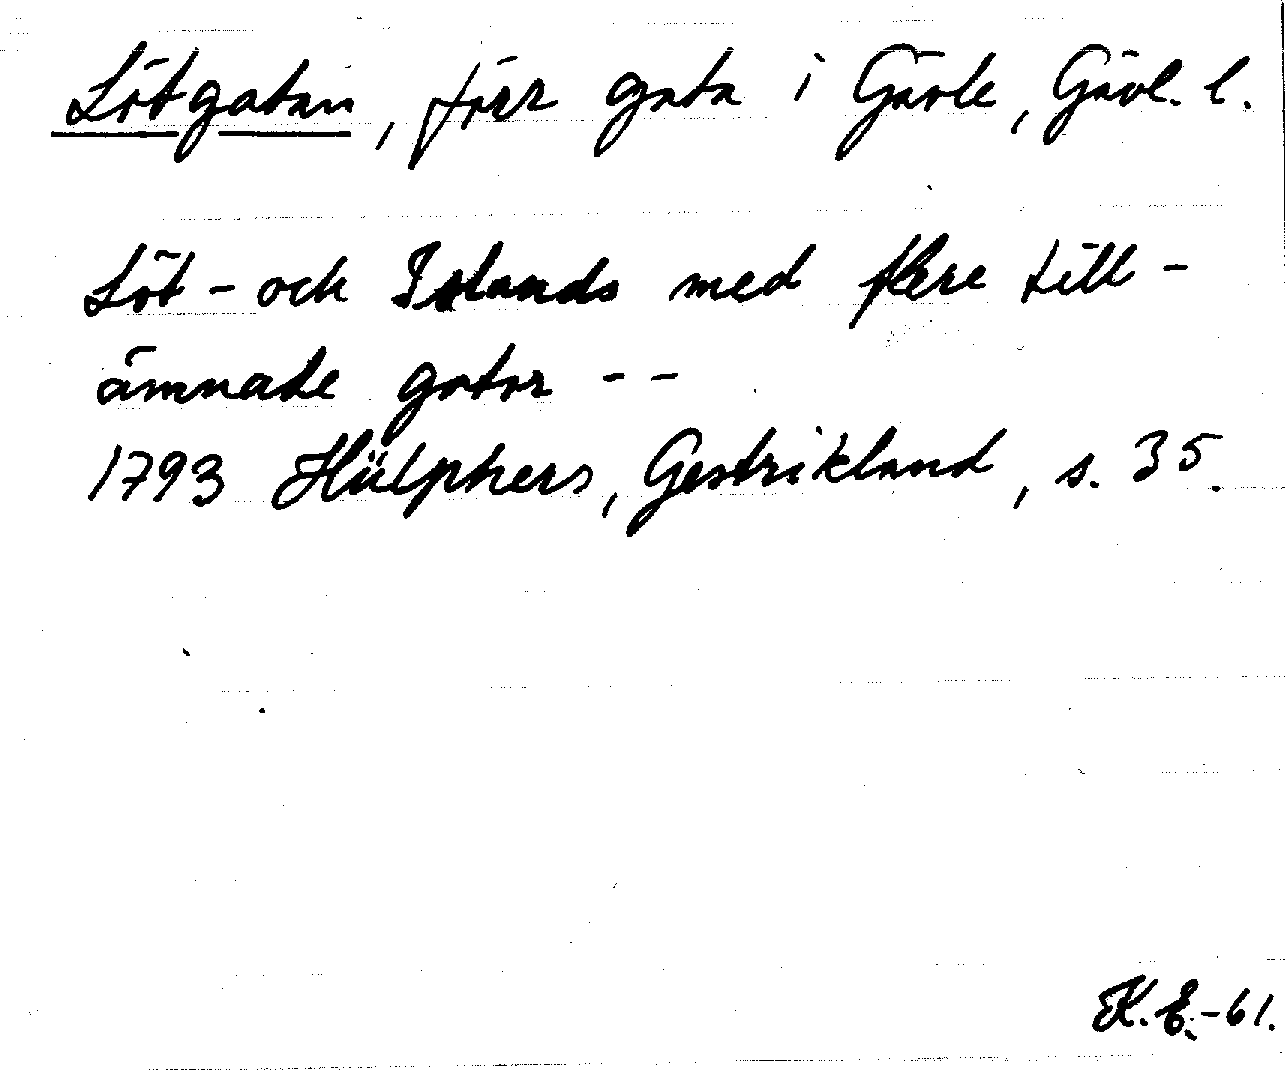 Lötgatan, förr gata i Gävle, Gävl. l.
Löt- och Islands med flere till-
ämnade gator --
1793 Hülphers, Gestrikland, s. 35.
K.E.-61.